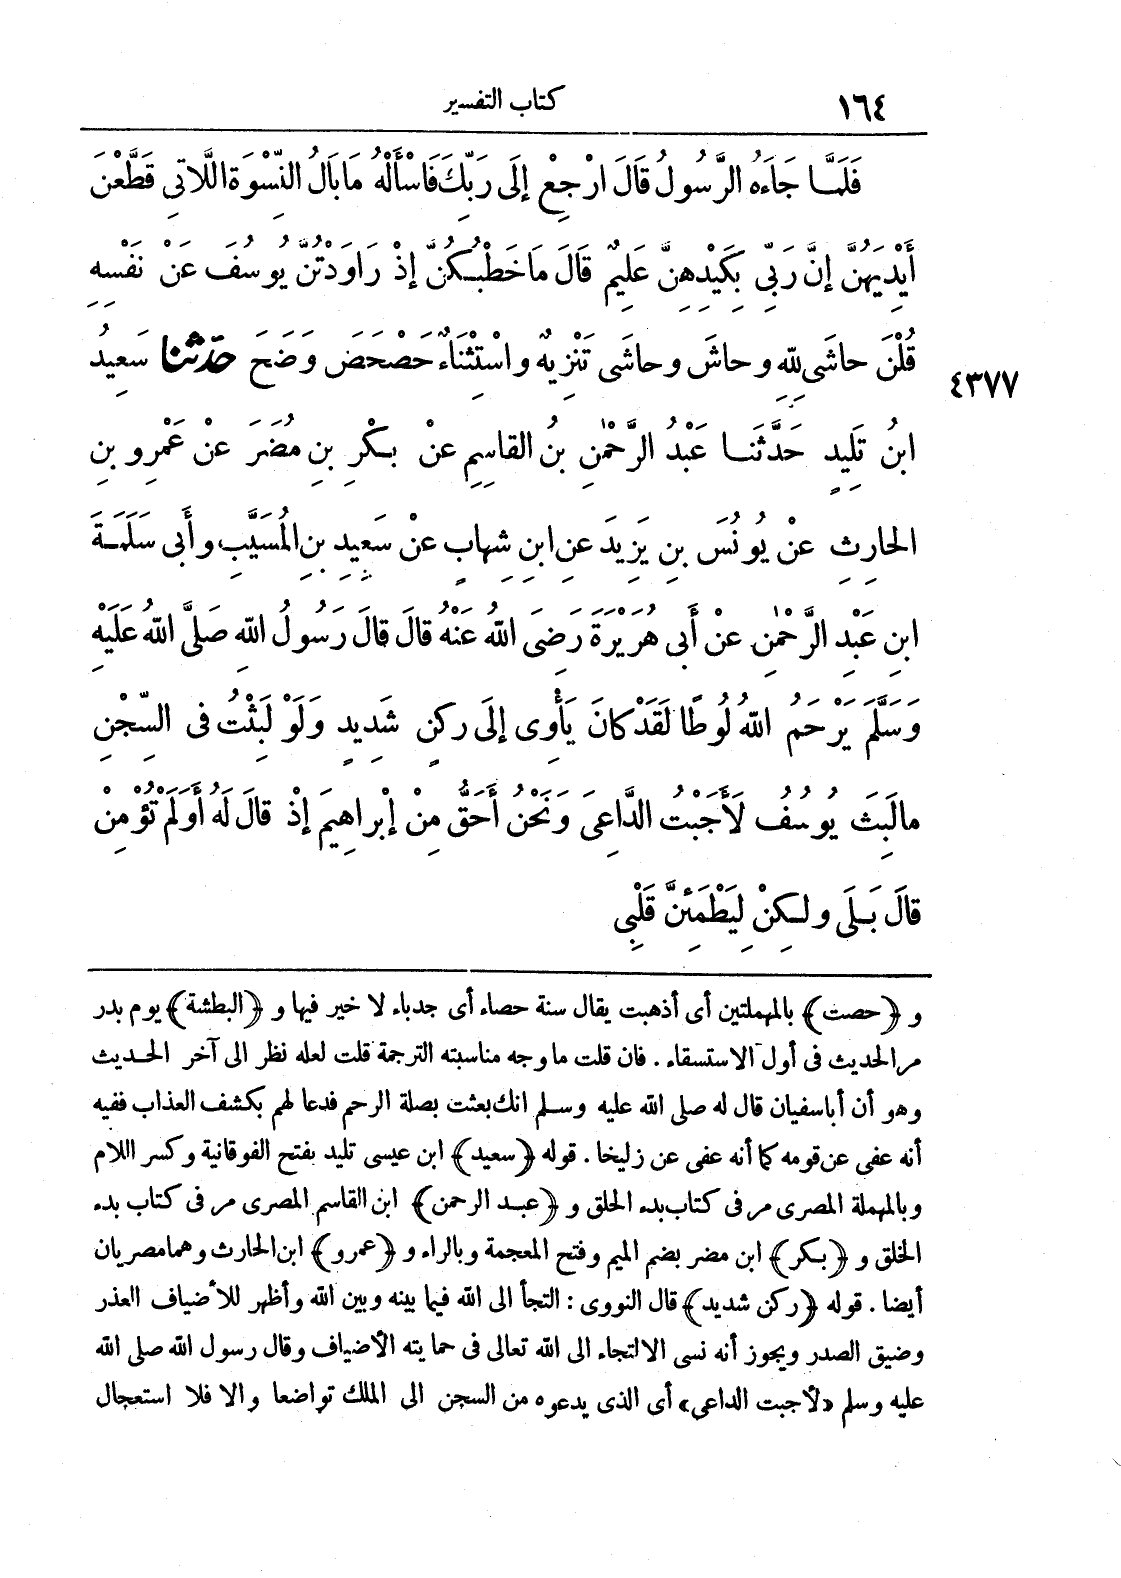 ١٦٤ كتاب التفسير
فَلَمَّا جَاءَهُ الرَّسُولُ قَالَ ارْجِعْ إِلَى رَبِّكَ فَاسْأَلْهُ مَا بَالُ النِّسْوَةِ اللَّاتِى قَطَّعْنَ
أَيْدِيَهُنَّ إِنَّ رَبِّى بِكَيْدِهِنَّ عَلِيمٌ قَالَ مَا خَطْبُكُنَّ إِذْ رَاوَدْتُنَّ يُوسُفَ عَنْ نَفْسِهِ
قُلْنَ حاشَى لِلّهِ وحاشَ وحاشَى تَنْزِيهٌ واسْتِثْنَاءٌ حَصْحَصَ وَضَحَ حدّثنا سَعِيدُ
٤٣٧٧
ابنُ تَلِيدٍ حَدَّثَنَا عَبْدُ الرَّحْمٰنِ بنُ القاسِمِ عنْ بَكْرِ بنِ مُضَرَ عنْ عَمْرِو بنِ
الحارِثِ عنْ يُونُسَ بنِ يَزِيدَ عنِ ابنِ شِهابٍ عنْ سَعِيدِ بنِ المُسَيَّبِ وأَبى سَلَمَةَ
ابنِ عَبْدِ الرَّحْمٰنِ عنْ أَبى هُرَيْرَةَ رَضِىَ اللهُ عنْهُ قالَ قالَ رَسُولُ اللهِ صَلَّى اللهُ عَلَيْهِ
وَسَلَّمَ يَرْحَمُ اللهُ لُوطًا لَقَدْ كانَ يَأْوِى إِلَى رُكنٍ شَدِيدٍ ولَوْ لَبِثْتُ فى السِّجْنِ
مالَبِثَ يُوسُفُ لَأَجَبْتُ الدَّاعِىَ ونَحْنُ أَحَقُّ مِنْ إبْراهِيمَ إِذْ قالَ لَهُ أَوَلَمْ تُؤْمِنْ
قالَ بَلَى ولكِنْ لِيَطْمَئِنَّ قَلْبِى
و (حصت) بالمهملتين أى أذهبت يقال سنة حصاء أى جدباء لا خير فيها و (البطشة) يوم بدر
مر الحديث فى أول الاستسقاء . فان قلت ما وجه مناسبته الترجمة قلت لعله نظر الى آخر الحديث
وهو أن أباسفيان قال له صلى الله عليه وسلم انك بعثت بصلة الرحم فدعا لهم بكشف العذاب ففيه
أنه عفى عن قومه كما أنه عفى عن زليخا . قوله (سعيد) ابن عيسى تليد بفتح الفوقانية وكسر اللام
وبالمهملة المصرى مر فى كتاب بدء الخلق و (عبد الرحمن) ابن القاسم المصرى مر فى كتاب بدء
الخلق و (بكر) ابن مضر بضم الميم وفتح المعجمة وبالراء و (عمرو) ابن الحارث وهما مصريان
أيضا . قوله (ركن شديد) قال النووى : التجأ الى الله فيما بينه وبين الله وأظهر للأضياف العذر
وضيق الصدر ويجوز أنه نسى الالتجاء الى الله تعالى فى حمايته الأضياف وقال رسول الله صلى الله
عليه وسلم «لأجبت الداعى» أى الذى يدعوه من السجن الى الملك تواضعا والا فلا استعجال